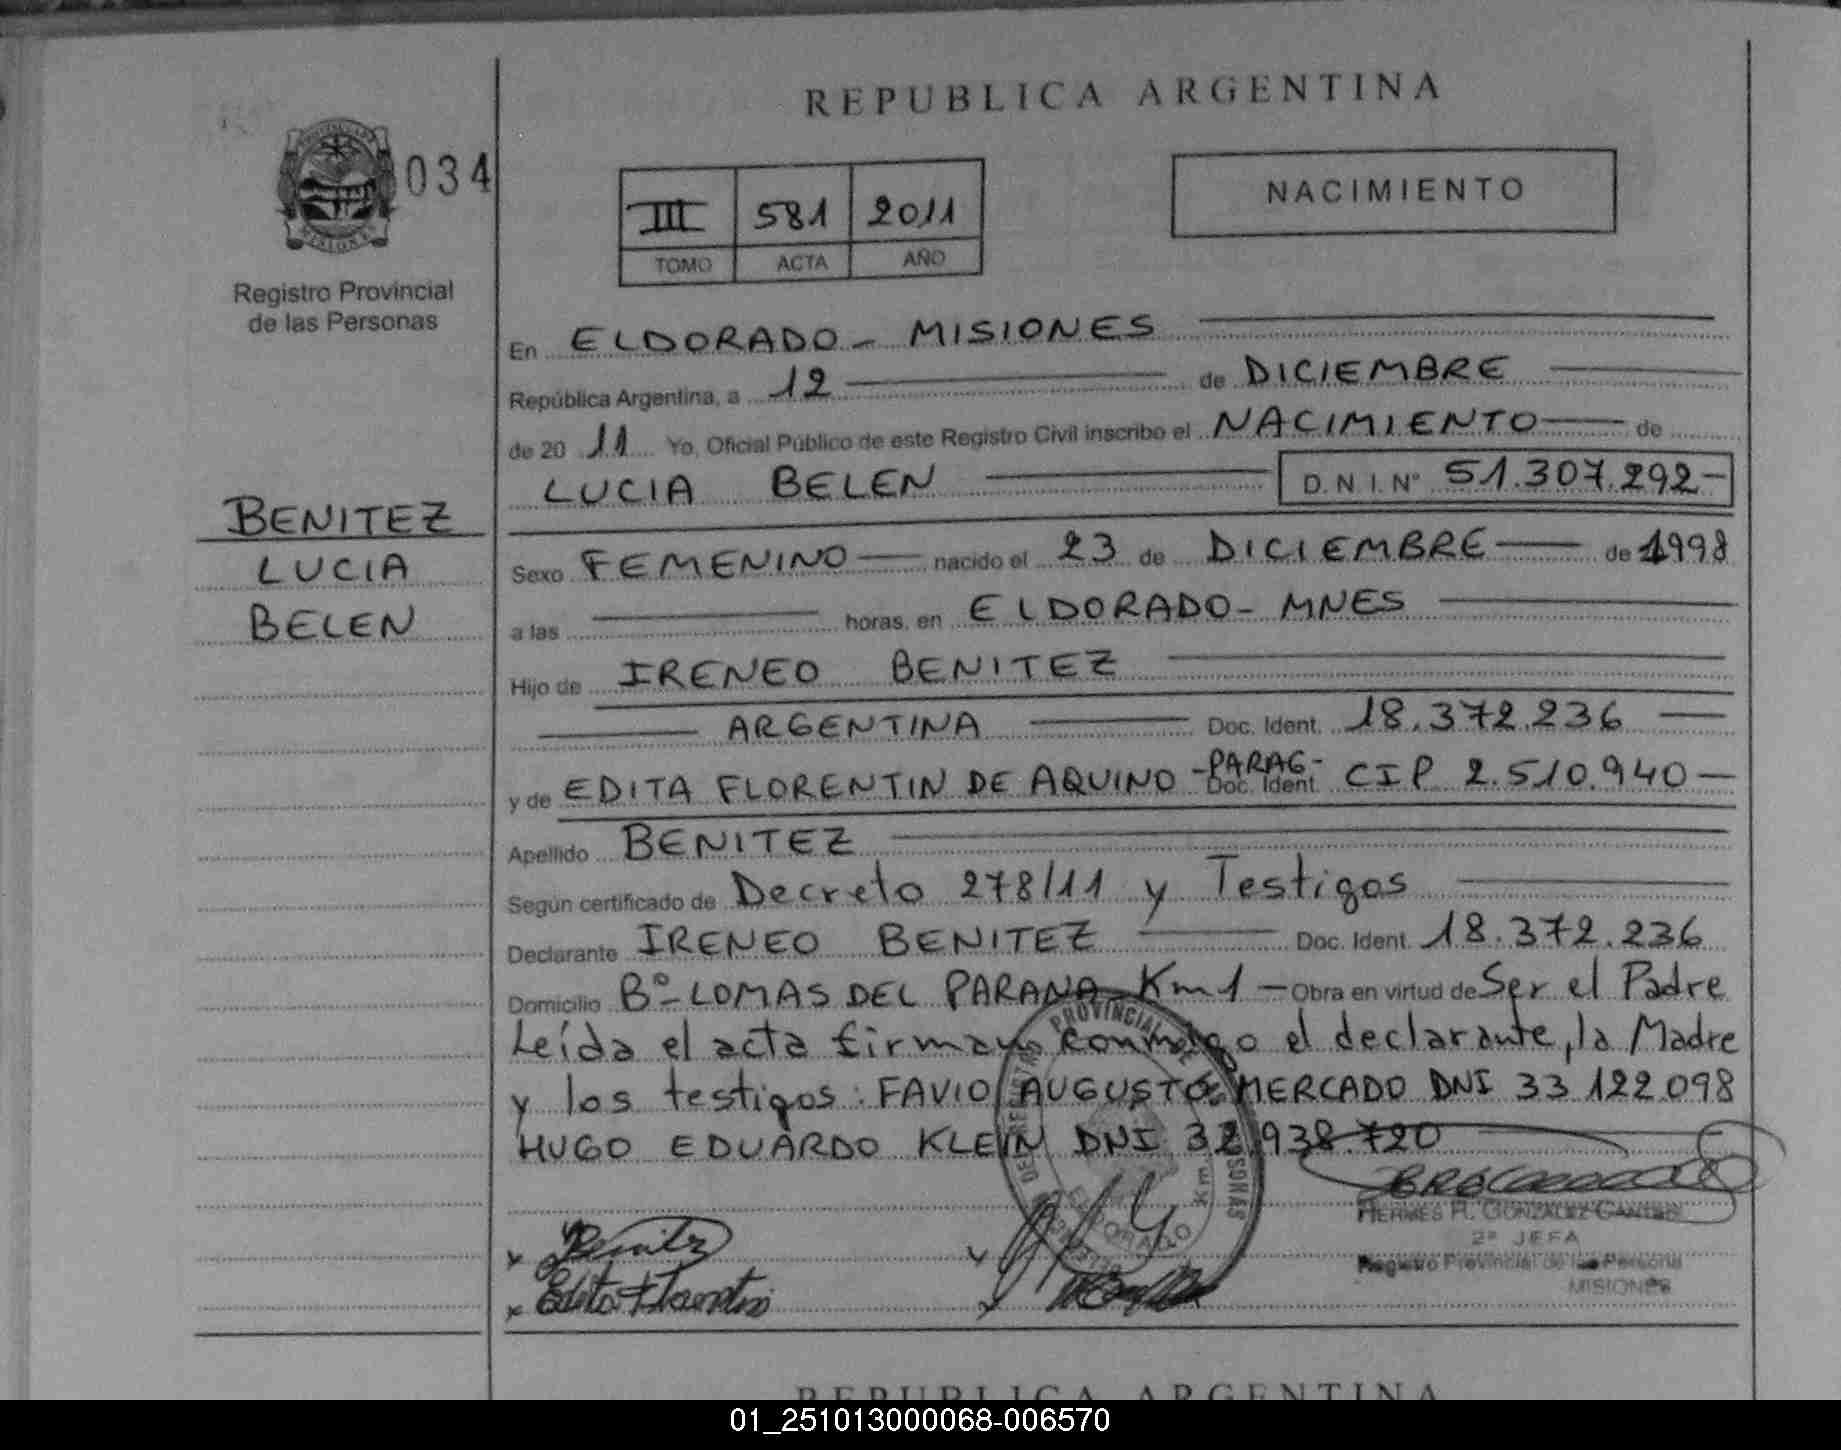 REPUBLICA ARGENTINA
034
NACIMIENTO
III 581 2011
TOMO ACTA AÑO
Registro Provincial
de las Personas
En ELDORADO - MISIONES
República Argentina, a 12 de DICIEMBRE
de 20 11 Yo, Oficial Público de este Registro Civil inscribo el NACIMIENTO de
LUCIA BELEN D.N.I. Nº 51.307.292-
BENITEZ
LUCIA
BELEN
Sexo FEMENINO nacido el 23 de DICIEMBRE de 1998
a las horas, en ELDORADO - MNES
Hijo de IRENEO BENITEZ
ARGENTINA Doc. Ident. 18.372.236
y de EDITA FLORENTIN DE AQUINO -PARAG- Doc. Ident. CIP 2.510.940
Apellido BENITEZ
Según certificado de Decreto 278/11 y Testigos
Declarante IRENEO BENITEZ Doc. Ident. 18.372.236
Domicilio Bº- LOMAS DEL PARANA - Km 1 - Obra en virtud de Ser el Padre
Leída el acta firman conmigo el declarante, la Madre
y los testigos: FAVIO AUGUSTO MERCADO DNI 33.122.098
HUGO EDUARDO KLEIN DNI 32.938.720
PROVINCIAL DE
ELDORADO
Km
HERMES R. GONZALEZ
2ª JEFA
Registro Provincial de las Persona
MISIONES
x Benitez
x Edita Florentin
REPUBLICA ARGENTINA
01_251013000068-006570